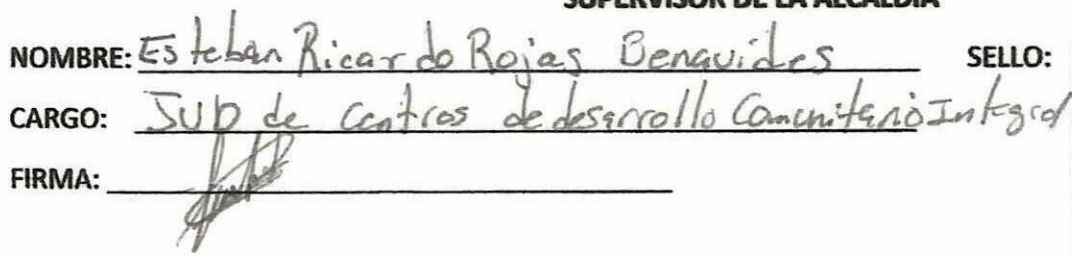 SUPERVISOR DE LA ALCALDÍA
NOMBRE: Esteban Ricardo Rojas Benavides SELLO:
CARGO: SUD de Centros de desarrollo Comunitario Integral
FIRMA: